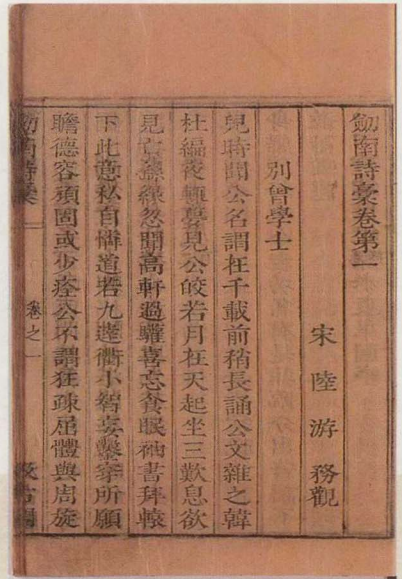 劒南詩稾卷第一
宋 陸 游 務觀
別曾學士
兒時聞公名謂在千載前稍長誦公文雜之韓
杜編夜輒夢見公皎若月在天起坐三歎息欲
見亡繇緣忽聞高軒過驩喜忘食眠袖書拜轅
下此意私自憐道若九達衢小智妄鑿穿所願
瞻德容頑固或少痊公不謂狂疎屈體與周旋
劒南詩稾 卷之一 汲古閣